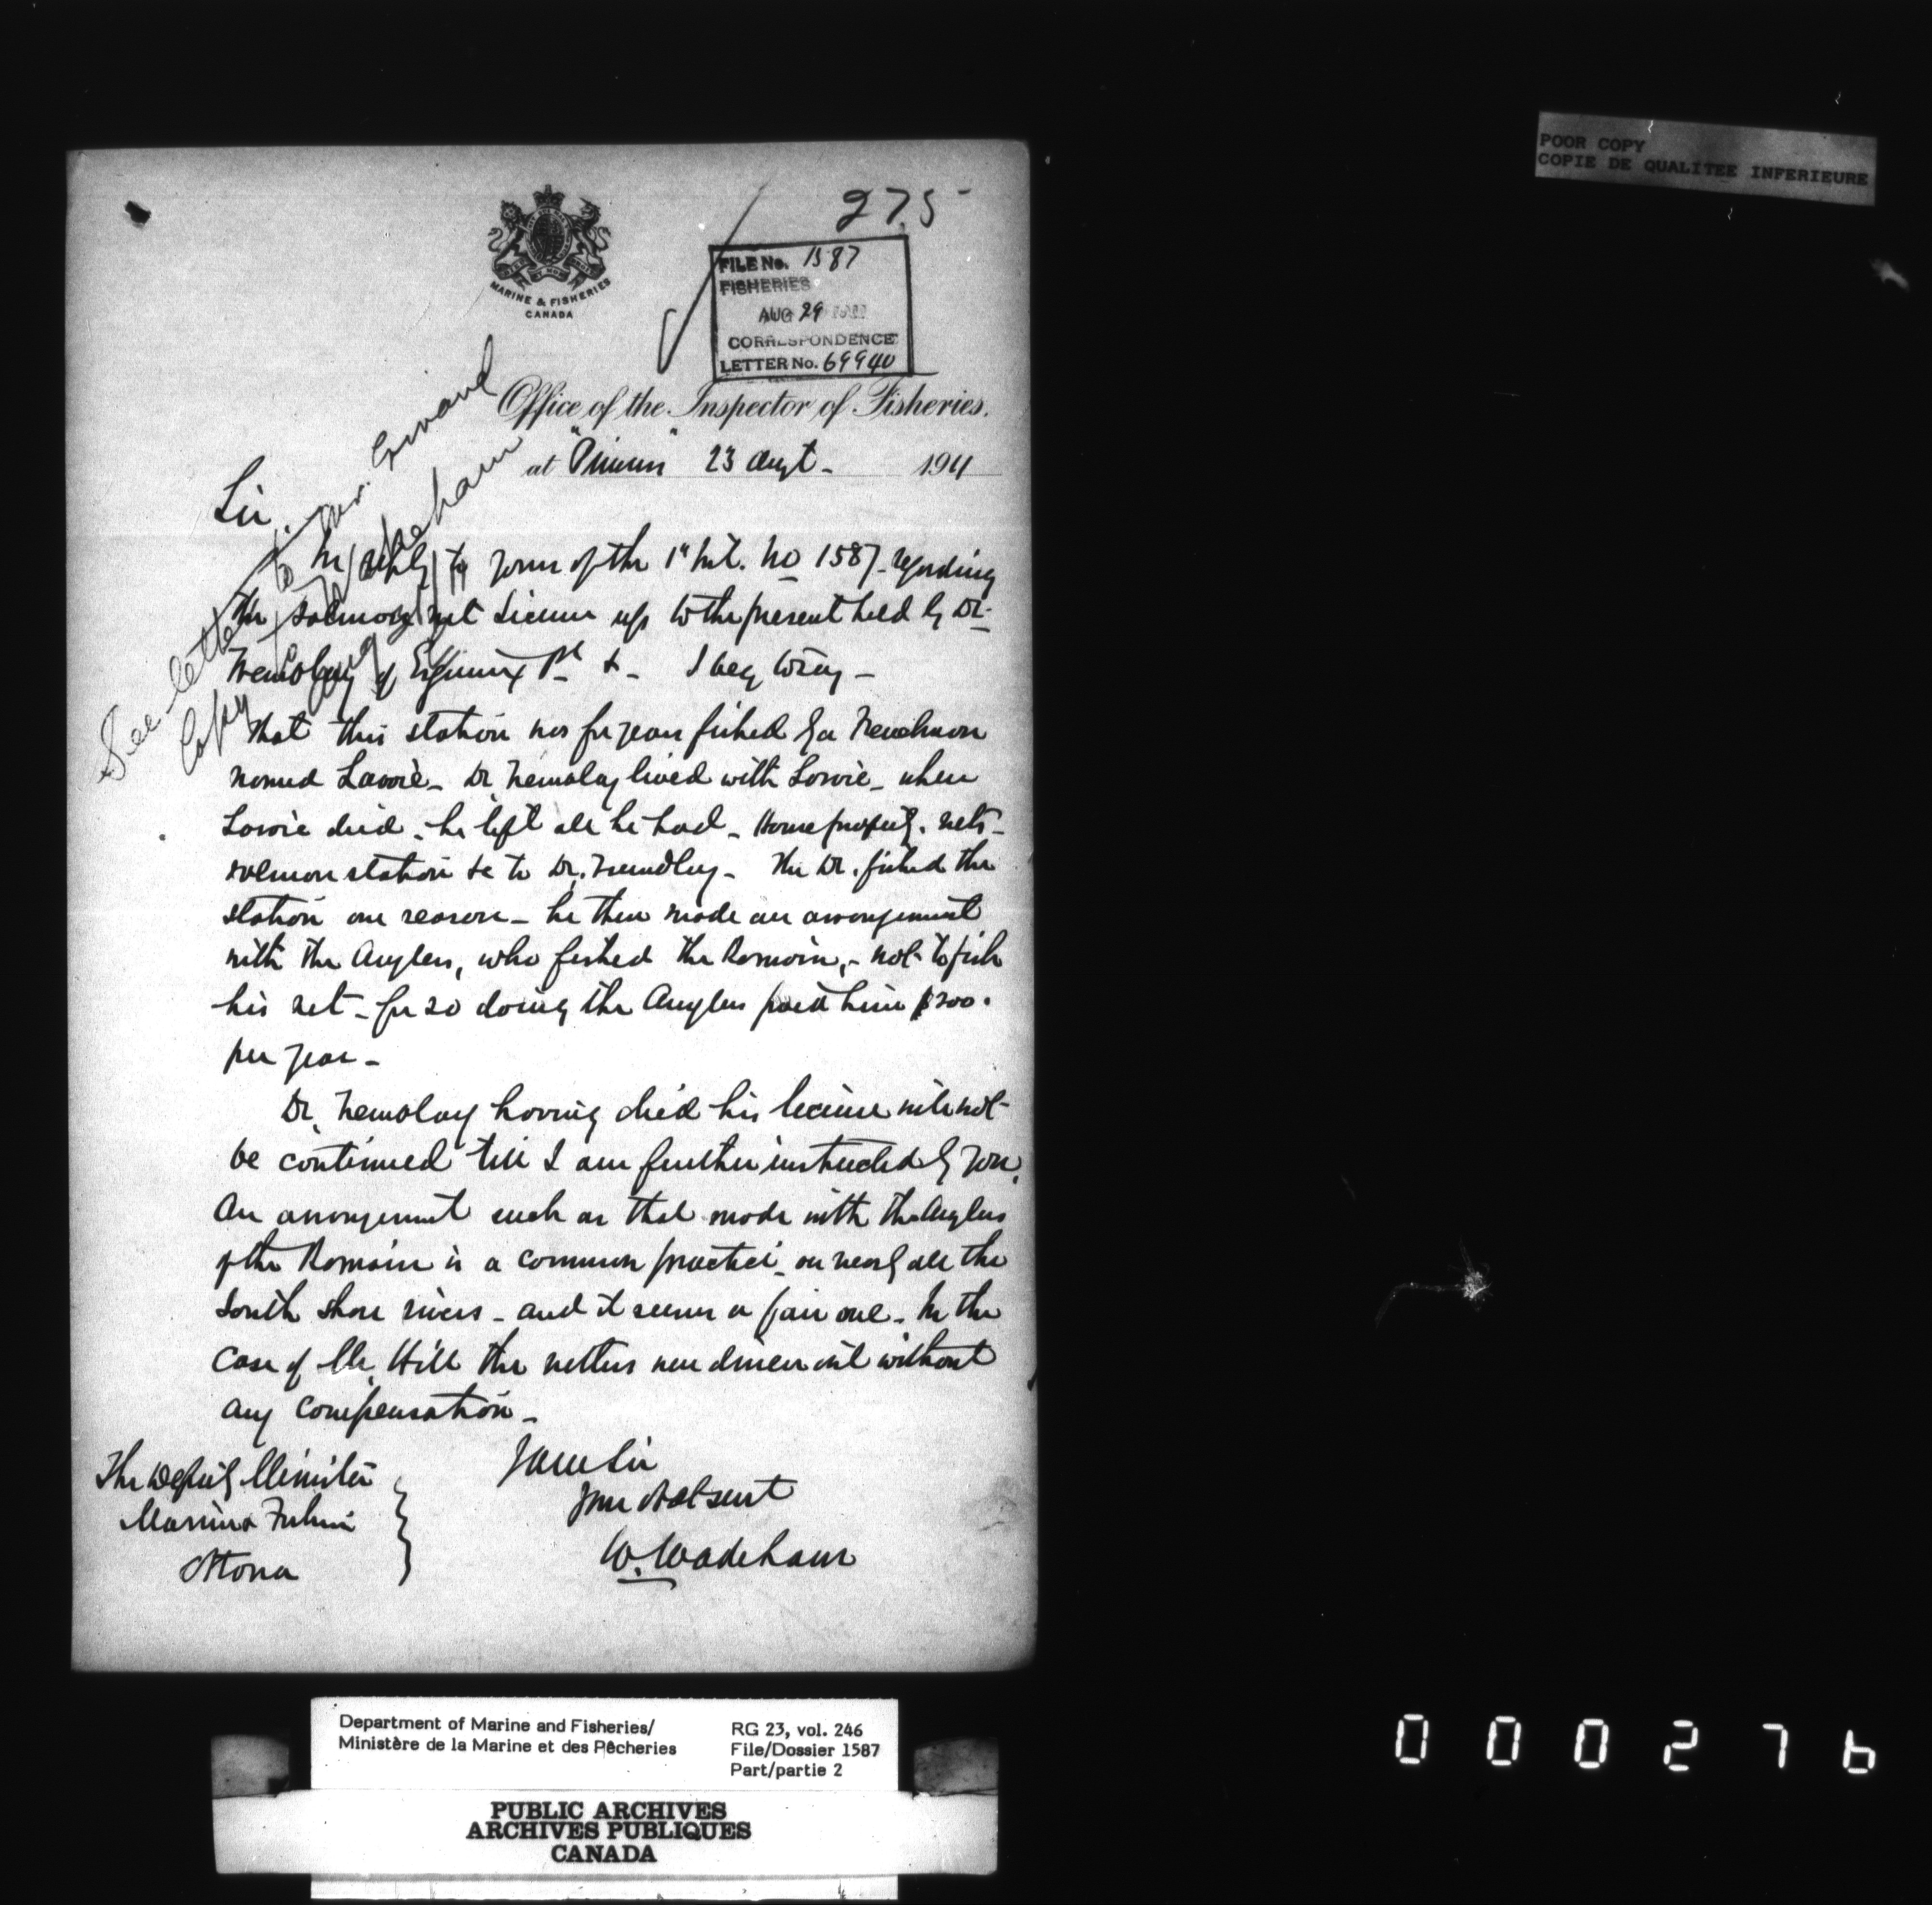 POOR COPY
COPIE DE QUALITEE INFERIEURE
275
MARINE & FISHERIES
CANADA
FILE No. 1587
FISHERIES
AUG 29 1911
CORRESPONDENCE
LETTER No. 69940
Office of the Inspector of Fisheries.
at 23 Augt - 1911
See letter to Mr.
Copy Wakeham
Sir.
In reply to yours of the 1st inst. No 1587 - regarding
the salmon net license up to the present held by Dr.
Tremblay of Esquimaux Pt & - I beg to say -
That this station was for years fished by a Frenchman
named Lavoie - Dr. Tremblay lived with Lavoie - when
Lavoie died - he left all he had - House property. nets -
salmon station &c to Dr. Tremblay - The Dr. fished the
station one season - he then made an arrangement
with the Anglers, who fished the Romain, - not to fish
his net - for so doing the Anglers paid him $200.
per year -
Dr. Tremblay having died his license will not
be continued till I am further instructed by you.
An arrangement such as that made with the Anglers
of the Romain is a common practice - on nearly all the
South Shore rivers - and it seems a fair one - In the
case of Mr. Hill the netters were driven out without
any compensation -
I am Sir
Your Obt sevt
W. Wakeham
The Deputy Minister
Marine & Fisheries
Ottawa
Department of Marine and Fisheries/
Ministère de la Marine et des Pêcheries
RG 23, vol. 246
File/Dossier 1587
Part/partie 2
PUBLIC ARCHIVES
ARCHIVES PUBLIQUES
CANADA
000276